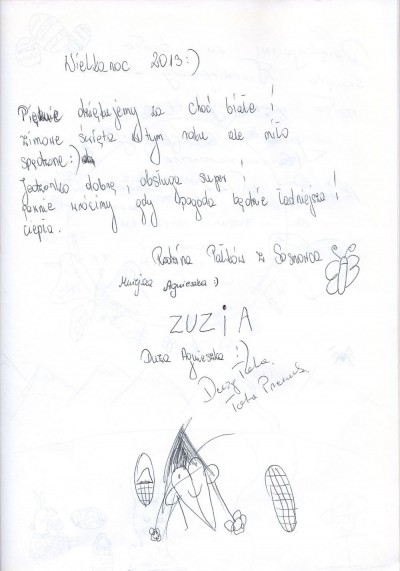 Wielkanoc 2013:)
Pięknie dziękujemy za choć białe!
zimowe święta w tym roku ale miło
spędzone:)
Jedzonko dobre, obsługa super!
pewnie wrócimy gdy pogoda będzie ładniejsza!
ciepła.
Rodzina Palików z Sosnowca
Mniejsza Agnieszka :)
ZUZiA
Duża Agnieszka :)
Duży
Tata